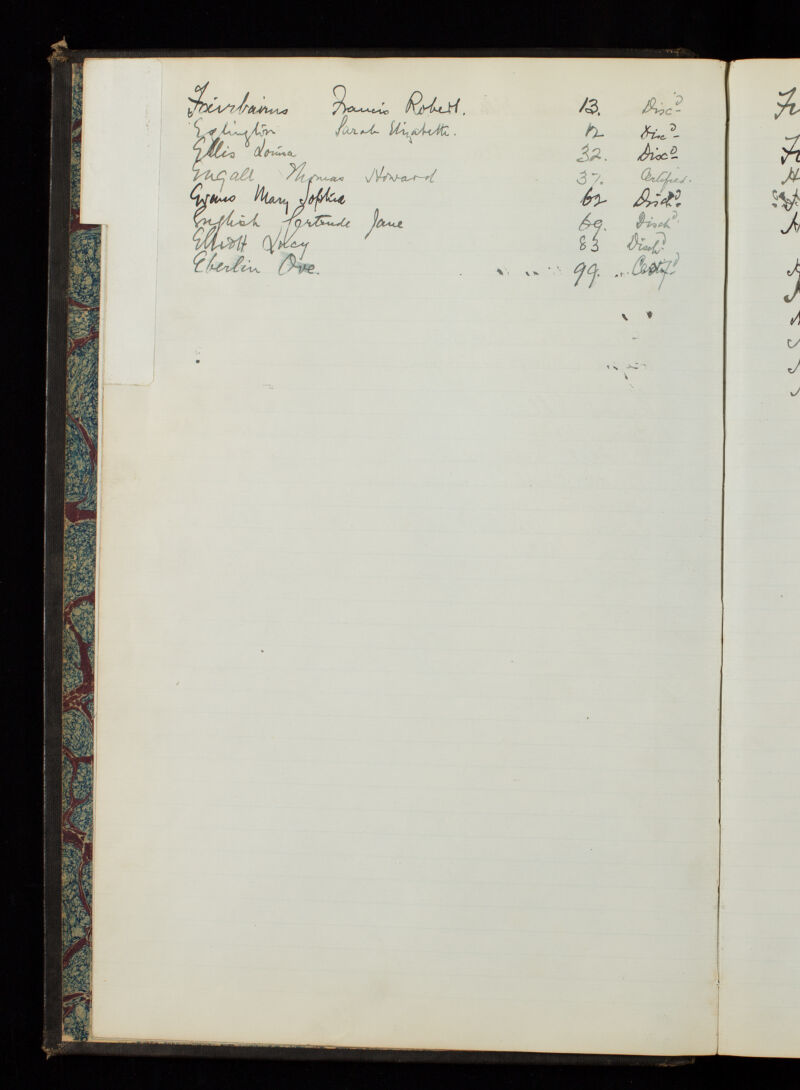 Fairbairns Francis Robert. 13. Disc^d
Eglington Sarah Elizabeth. 12 Disc^d
Ellis Louisa 32. Disc^d
Engall Thomas Howard 37. Certified.
Evans Mary Sophia 62 Disch^d
English Gertrude Jane 69. Disch^d
Elliott Lucy 83 Disch^d
Eberlin Ove. 99. Certif^d